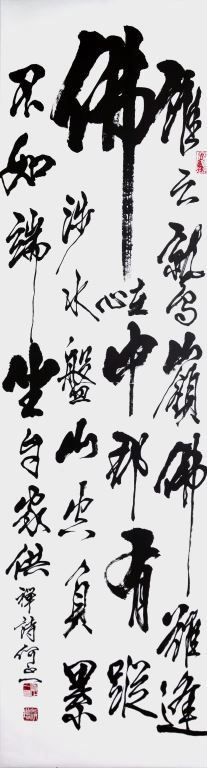 雖云鷲嶺佛難逢
佛在心中那有蹤
涉水盤山空負累
不如端坐自家供 禪詩